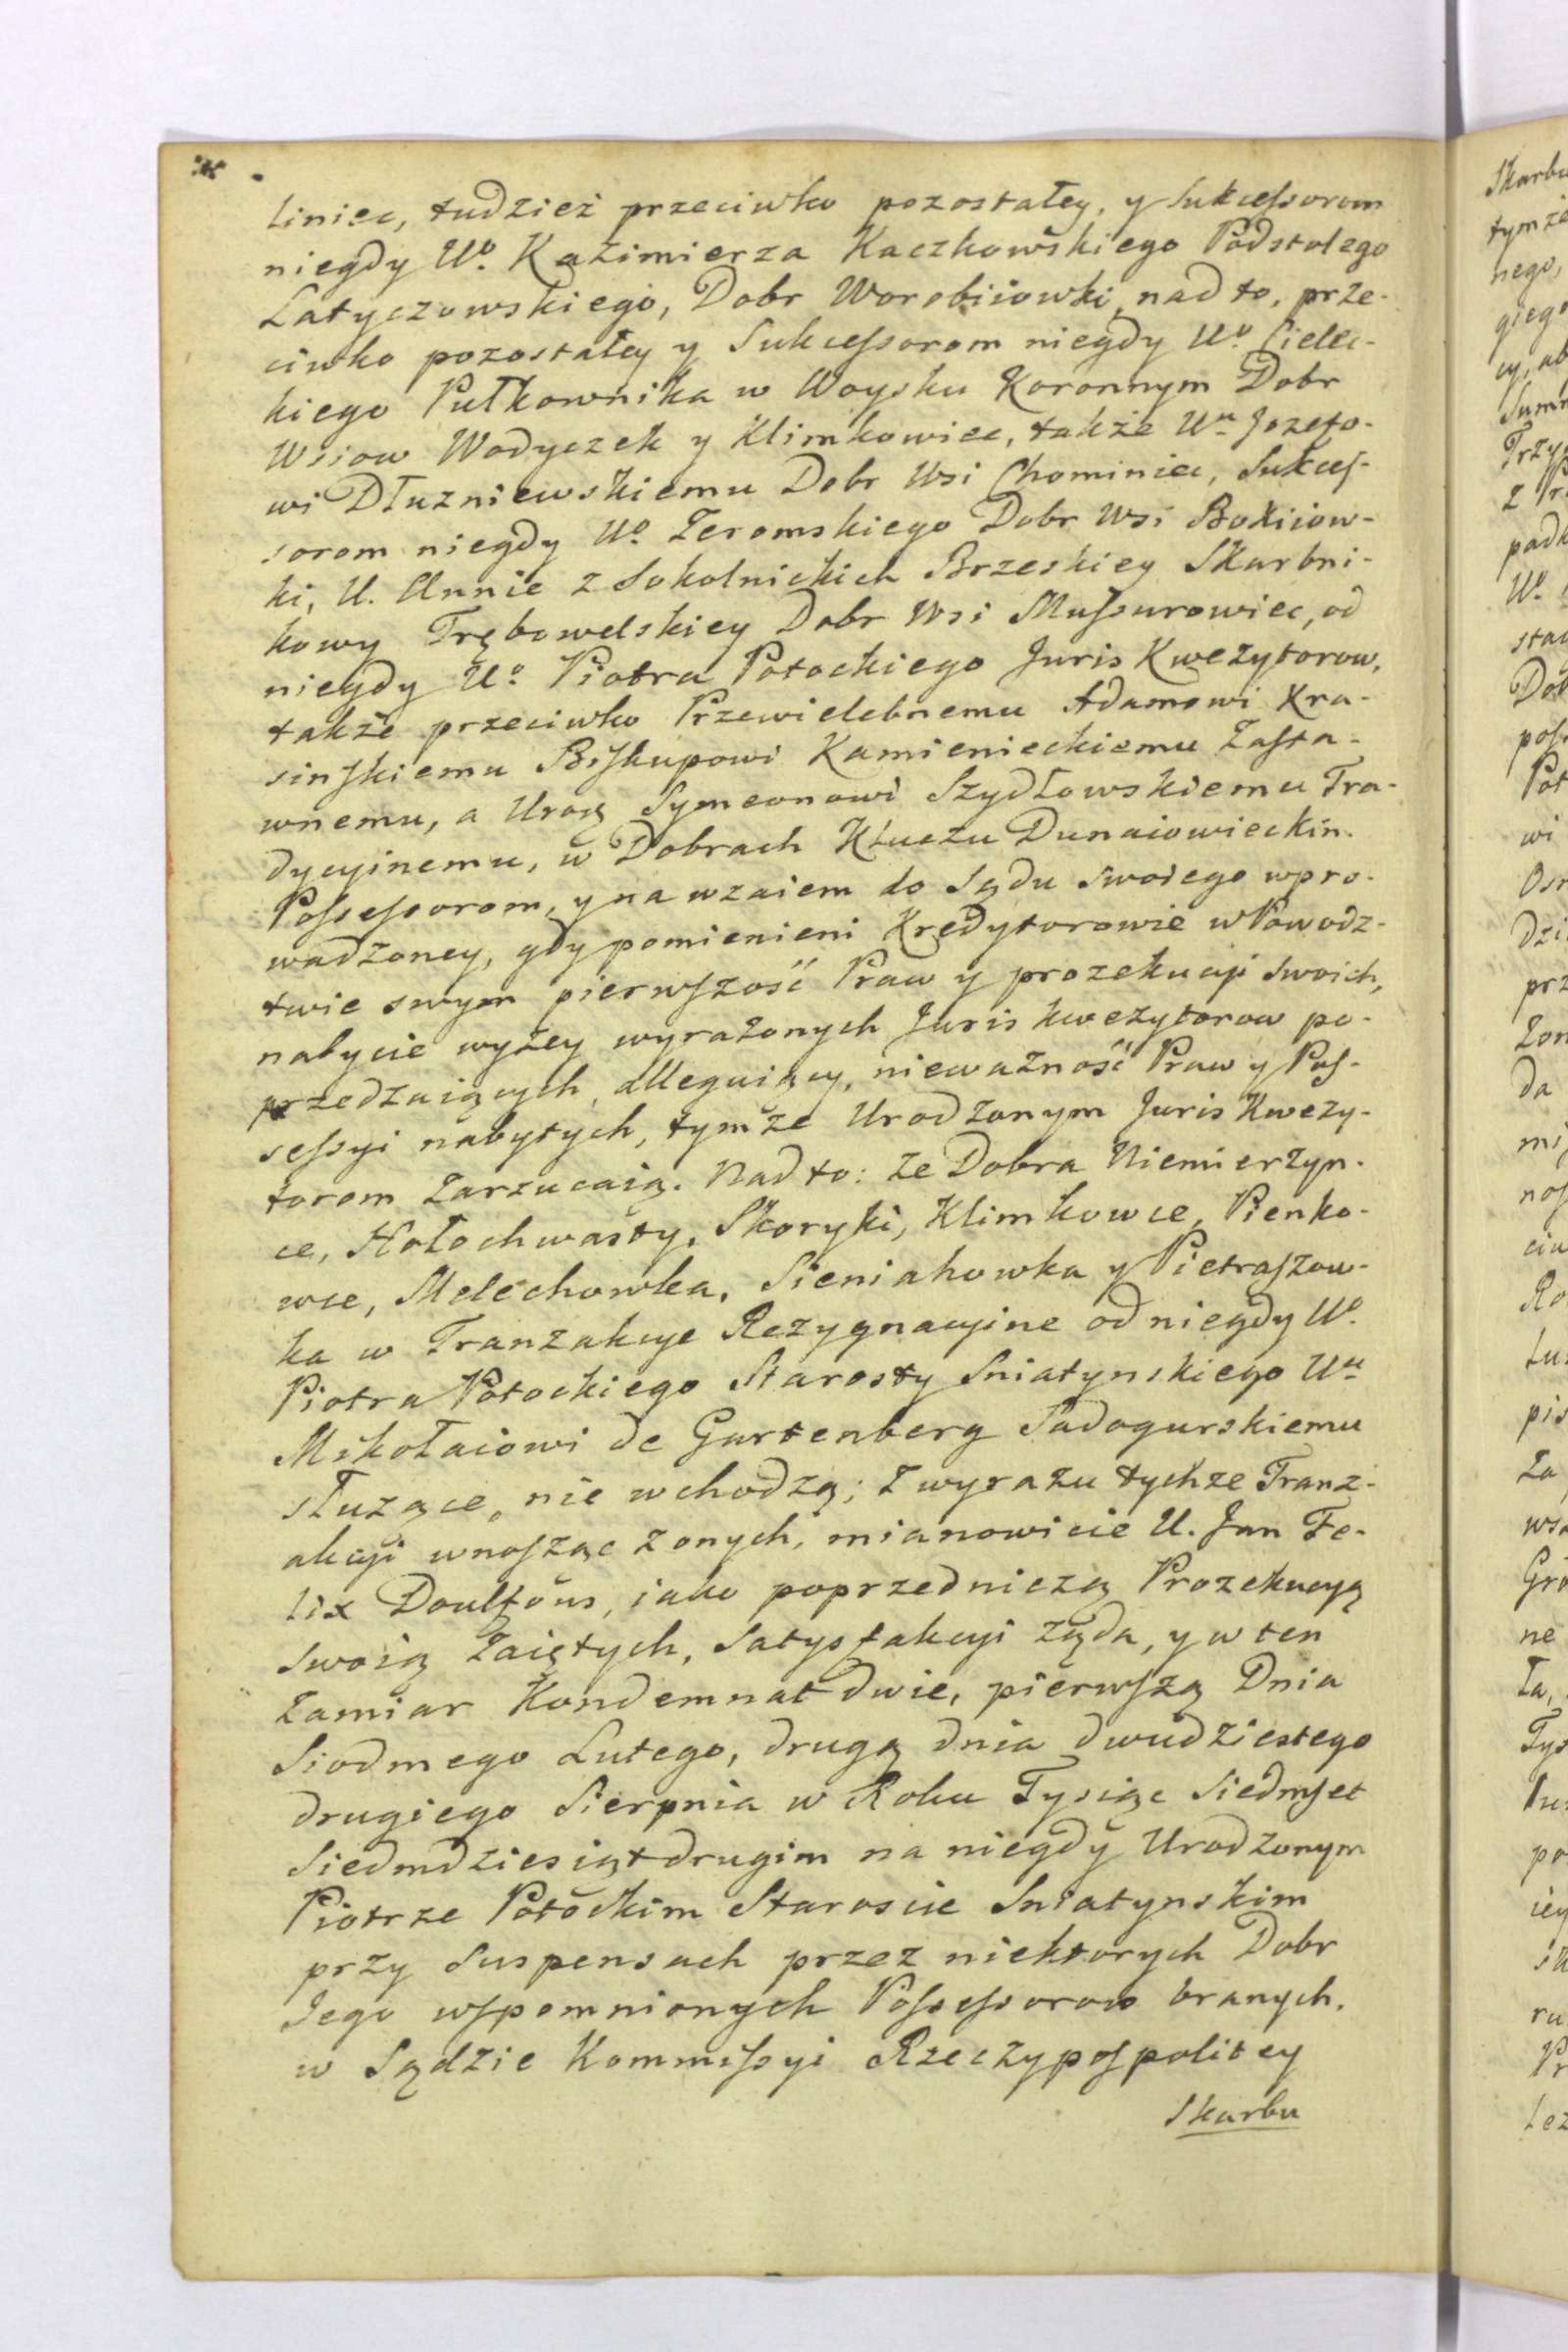 liniec, tudzież przeciwko pozostałey, y Sukcessorom
niegdy Uº. Kazimierza Kaczkowskiego Podstolego
Latyczowskiego, Dobr Worobiiowki, nad to, prze-
ciwko pozostałey y Sukcessorom niegdy Uº. Cielec-
kiego Pułkownika w Woysku Koronnym Dobr
Wsiow Wodyczek y Klimkowiec, także Uᵘ Jozefo-
wi Dłuzniewskiemu Dobr Wsi Chominiec, Sukces-
sorom niegdy Uº. Zeromskiego Dobr Wsi Boxiiow-
ki, U. Annie z Sokolnickich Brzeskiey Skarbni-
kowy Trębowelskiey Dobr Wsi Mussurowiec, od
niegdy Uº. Piotra Potockiego Juris Kwezytorow,
także przeciwko Przewielebnemu Adamowi Kra-
sinskiemu Biskupowi Kamienieckiemu Zasta-
wnemu, a Urog Symeonowi Szydłowskiemu Tra-
dycyinemu, w Dobrach Kluczu Dunaiowieckin.
Possessorom, y na wzaiem do Sądu swoiego wpro-
wadzoney, gdy pomienieni Kredytorowie w Powodz-
twie swym pierwszość Praw y prozekucyi swoich,
nabycie wyżey wyrażonych Juris kwezytorow po-
przedzaiących, alleguiący, nieważność Praw y Pos-
sessyi nabytych, tymże Urodzonym Juris Kwezy-
torom zarzucaią. Nad to: że Dobra Niemierzyn-
ce, Hołochwasty, Skoryki, Klimkowce, Pienko-
wce, Melechowka, Sieniahowka y Pietraszow-
ka w Tranzakcye Rezygnacyine od niegdy Uº.
Piotra Potockiego Starosty Sniatynskiego Uᵘ
Mikołaiowi de Gartenberg Sadogurskiemu
służące, nie wchodzą; z wyrazu tychże Tranz-
akcyi wnosząc z onych, mianowicie U. Jan Fe-
lix Doulfous, iako poprzedniczą Prozekucyą
swoią zaiętych, Satysfakcyi żąda, y w ten
zamiar Kondemnat dwie, pierwszą Dnia
Siodmego Lutego, drugą dnia dwudziestego
drugiego Sierpnia w Roku Tysiąc Siedmset
Siedmdziesiąt drugim na niegdy Urodzonym
Piotrze Potockim Staroscie Sniatynskim
przy Suspensach przez niektorych Dobr
Jego wspomnionych Possessorow branych,
w Sądzie Kommissyi Rzeczypospolitey
Skarbu